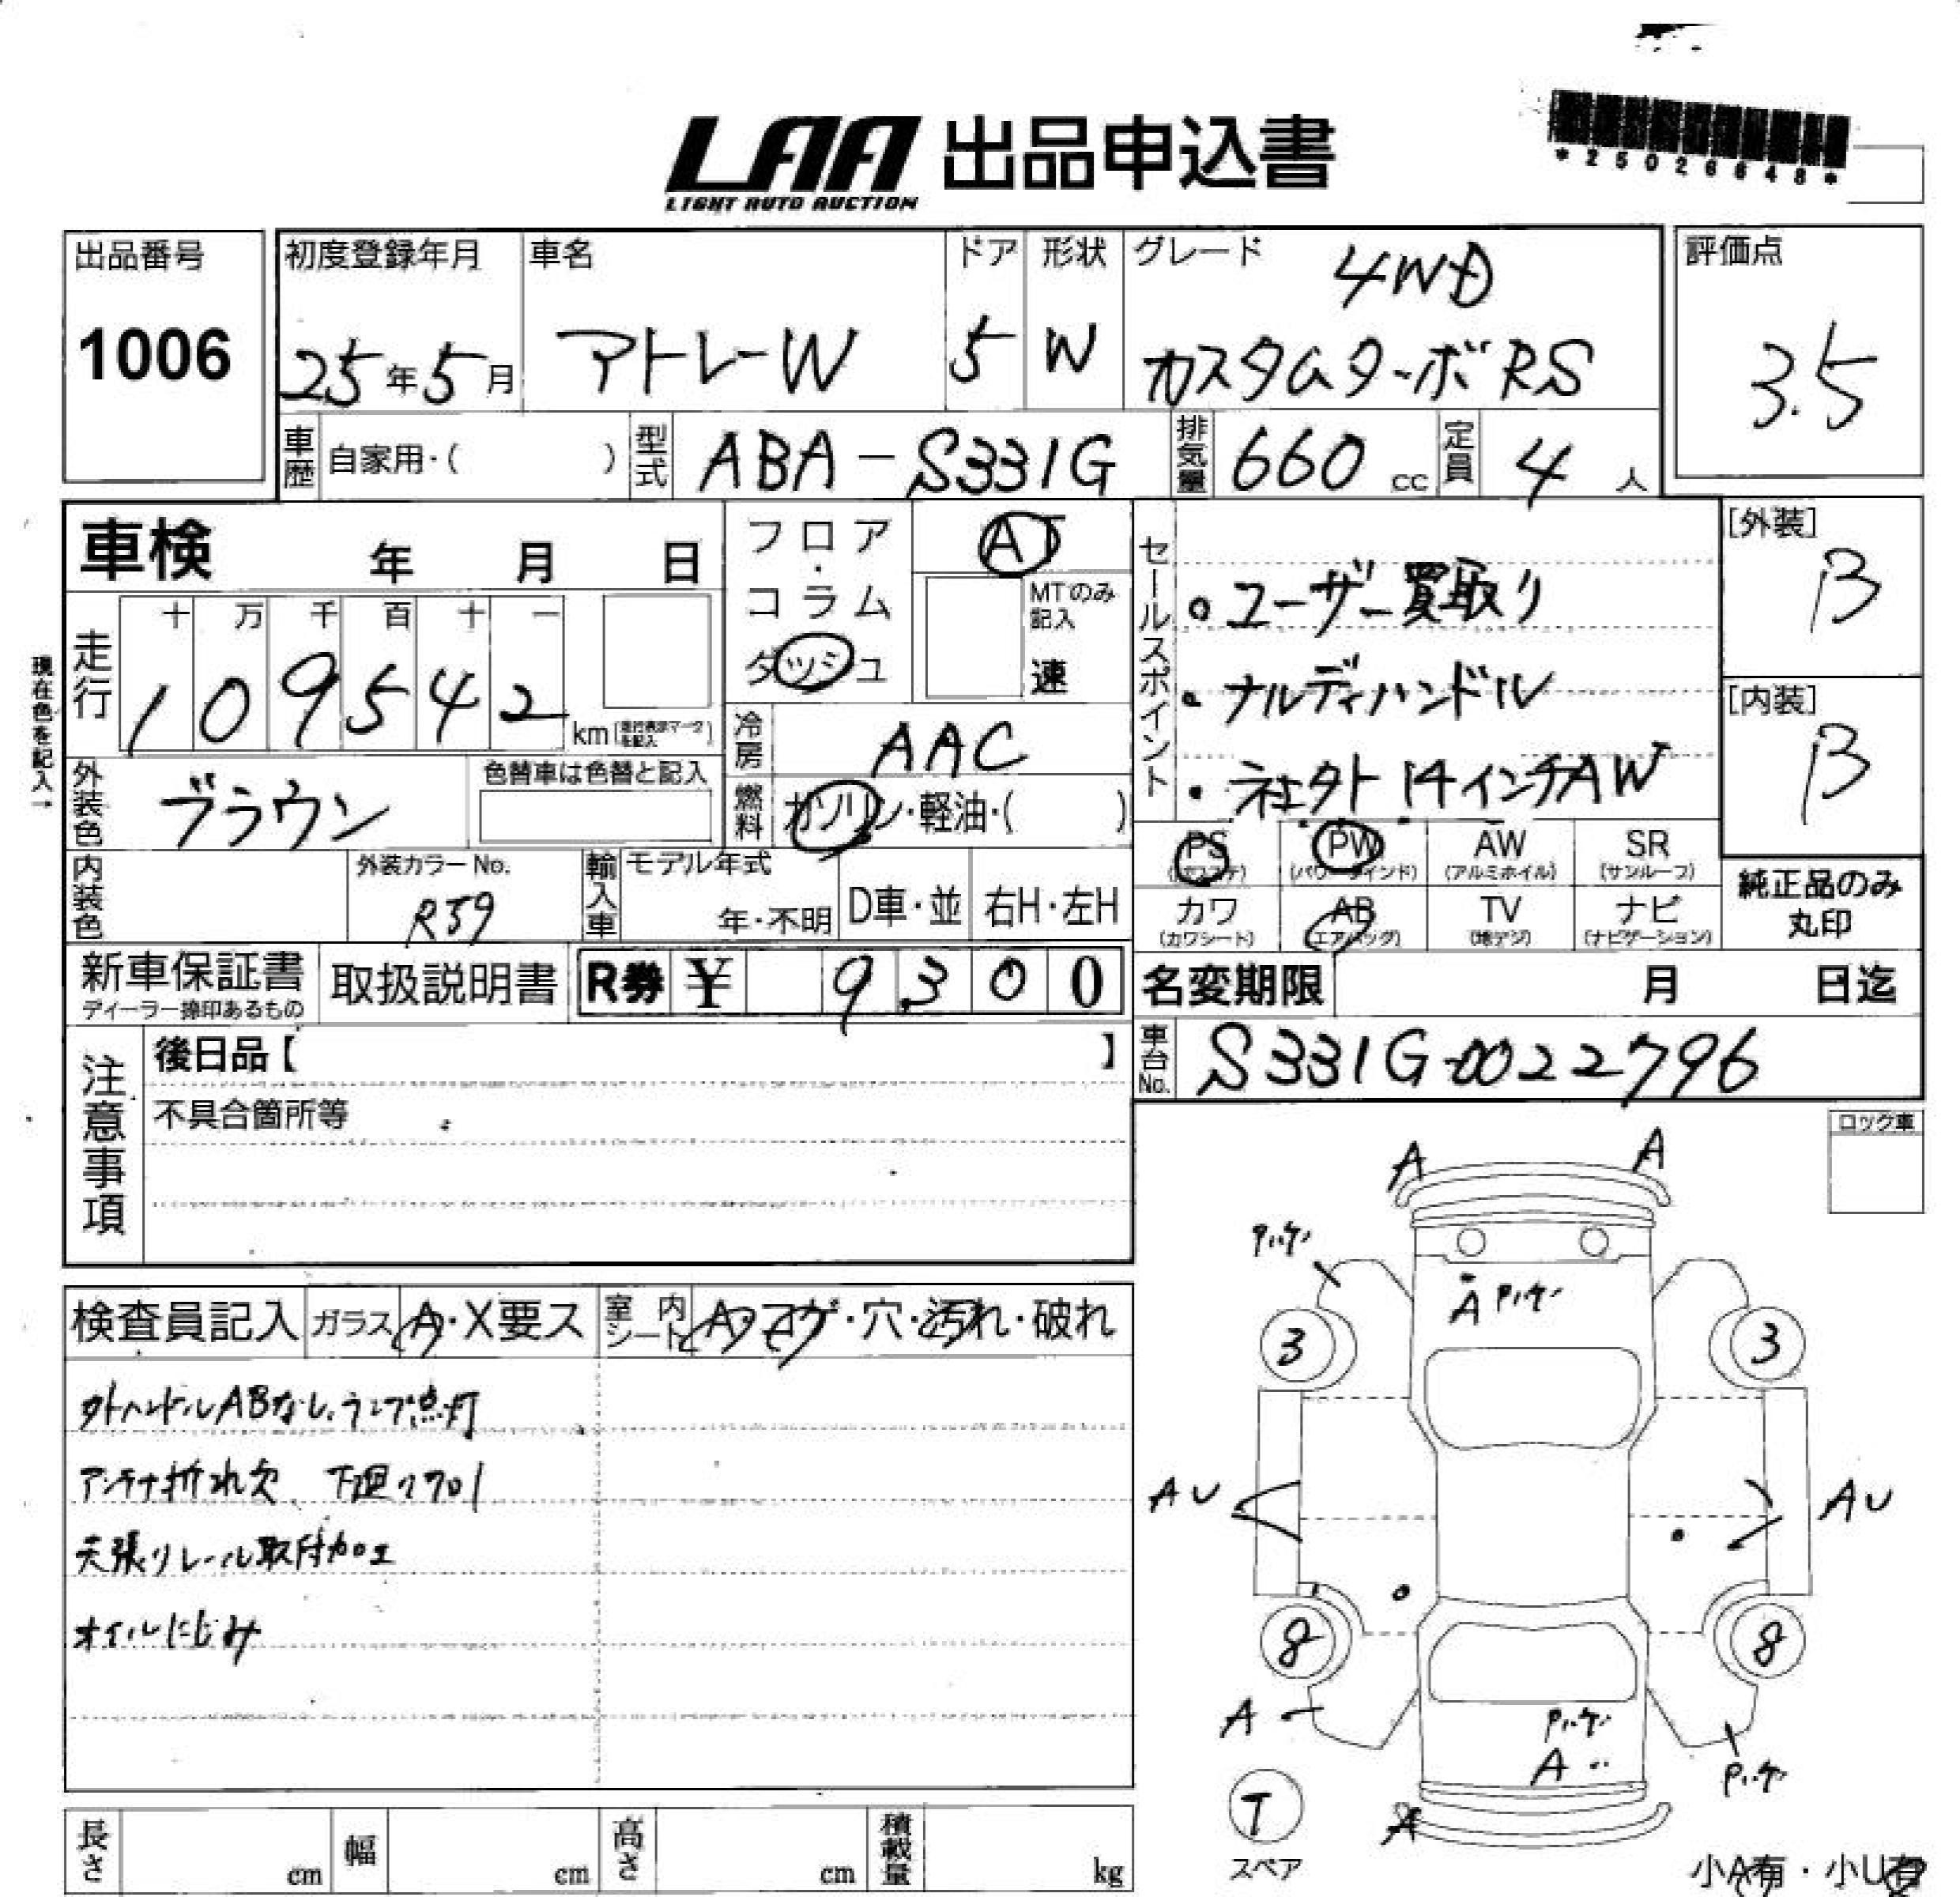 LAA 出品申込書
LIGHT AUTO AUCTION
*25026648*
出品番号
1006
初度登録年月
25年5月
車名
アトレーW
ドア
5
形状
W
グレード
4WD
カスタムターボRS
評価点
3.5
車歴
自家用・( )
型式
ABA-S331G
排気量
660 cc
定員
4 人
車検 年 月 日
フロア・コラム
ダッシュ
AT
MTのみ記入
速
セールスポイント
。ユーザー買取り
・ナルディハンドル
・社外14インチAW
[外装]
B
[内装]
B
現在色を記入→
走行
十 万 千 百 十 一
1 0 9 5 4 2
km
冷房
AAC
外装色
ブラウン
色替車は色替と記入
燃料
ガソリン・軽油・( )
PS
PW
(パワーウィンド)
AW
(アルミホイル)
SR
(サンルーフ)
カワ
(カワシート)
AB
(エアバッグ)
TV
(地デジ)
ナビ
(ナビゲーション)
純正品のみ
丸印
内装色
外装カラーNo.
R59
輸入車
モデル年式
年・不明
D車・並
右H・左H
新車保証書
取扱説明書
R券 ¥ 9,300
名変期限 月 日迄
車台No.
S331G-0022796
注意事項
後日品【 】
不具合箇所等
ロック車
検査員記入
ガラス
A・X要ス
室内シート
A・コゲ・穴・汚れ・破れ
外ハンドルABなし、ランプ点灯
アンテナ折れ欠、下廻りサビ
天張りレール取付加工
オイルにじみ
A
A
A
3
3
AU
AU
8
8
A
A
A
T
スペア
小A有・小U有
長さ cm
幅 cm
高さ cm
積載量 kg